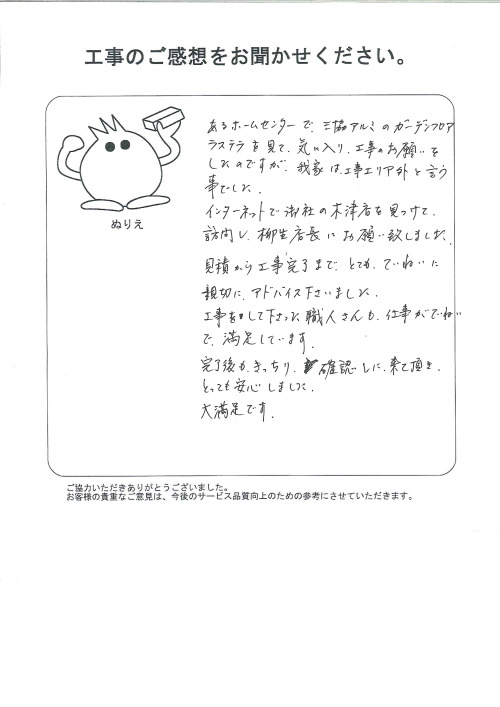 工事のご感想をお聞かせください。
ぬりえ
あるホームセンターで、三協アルミのガーデンフロア
ラステラを見て、気に入り、工事のお願いを
したのですが、我家は工事エリア外と言う
事でした。
インターネットで御社の木津店を見つけて、
訪問し、柳生店長にお願い致しました。
見積から工事完了まで、とても、ていねいに
親切に、アドバイス下さいました。
工事をして下さった職人さんも、仕事がていねい
で、満足しています。
完了後も、きっちり、確認しに、来て頂き、
とっても安心しました。
大満足です。
ご協力いただきありがとうございました。
お客様の貴重なご意見は、今後のサービス品質向上のための参考にさせていただきます。